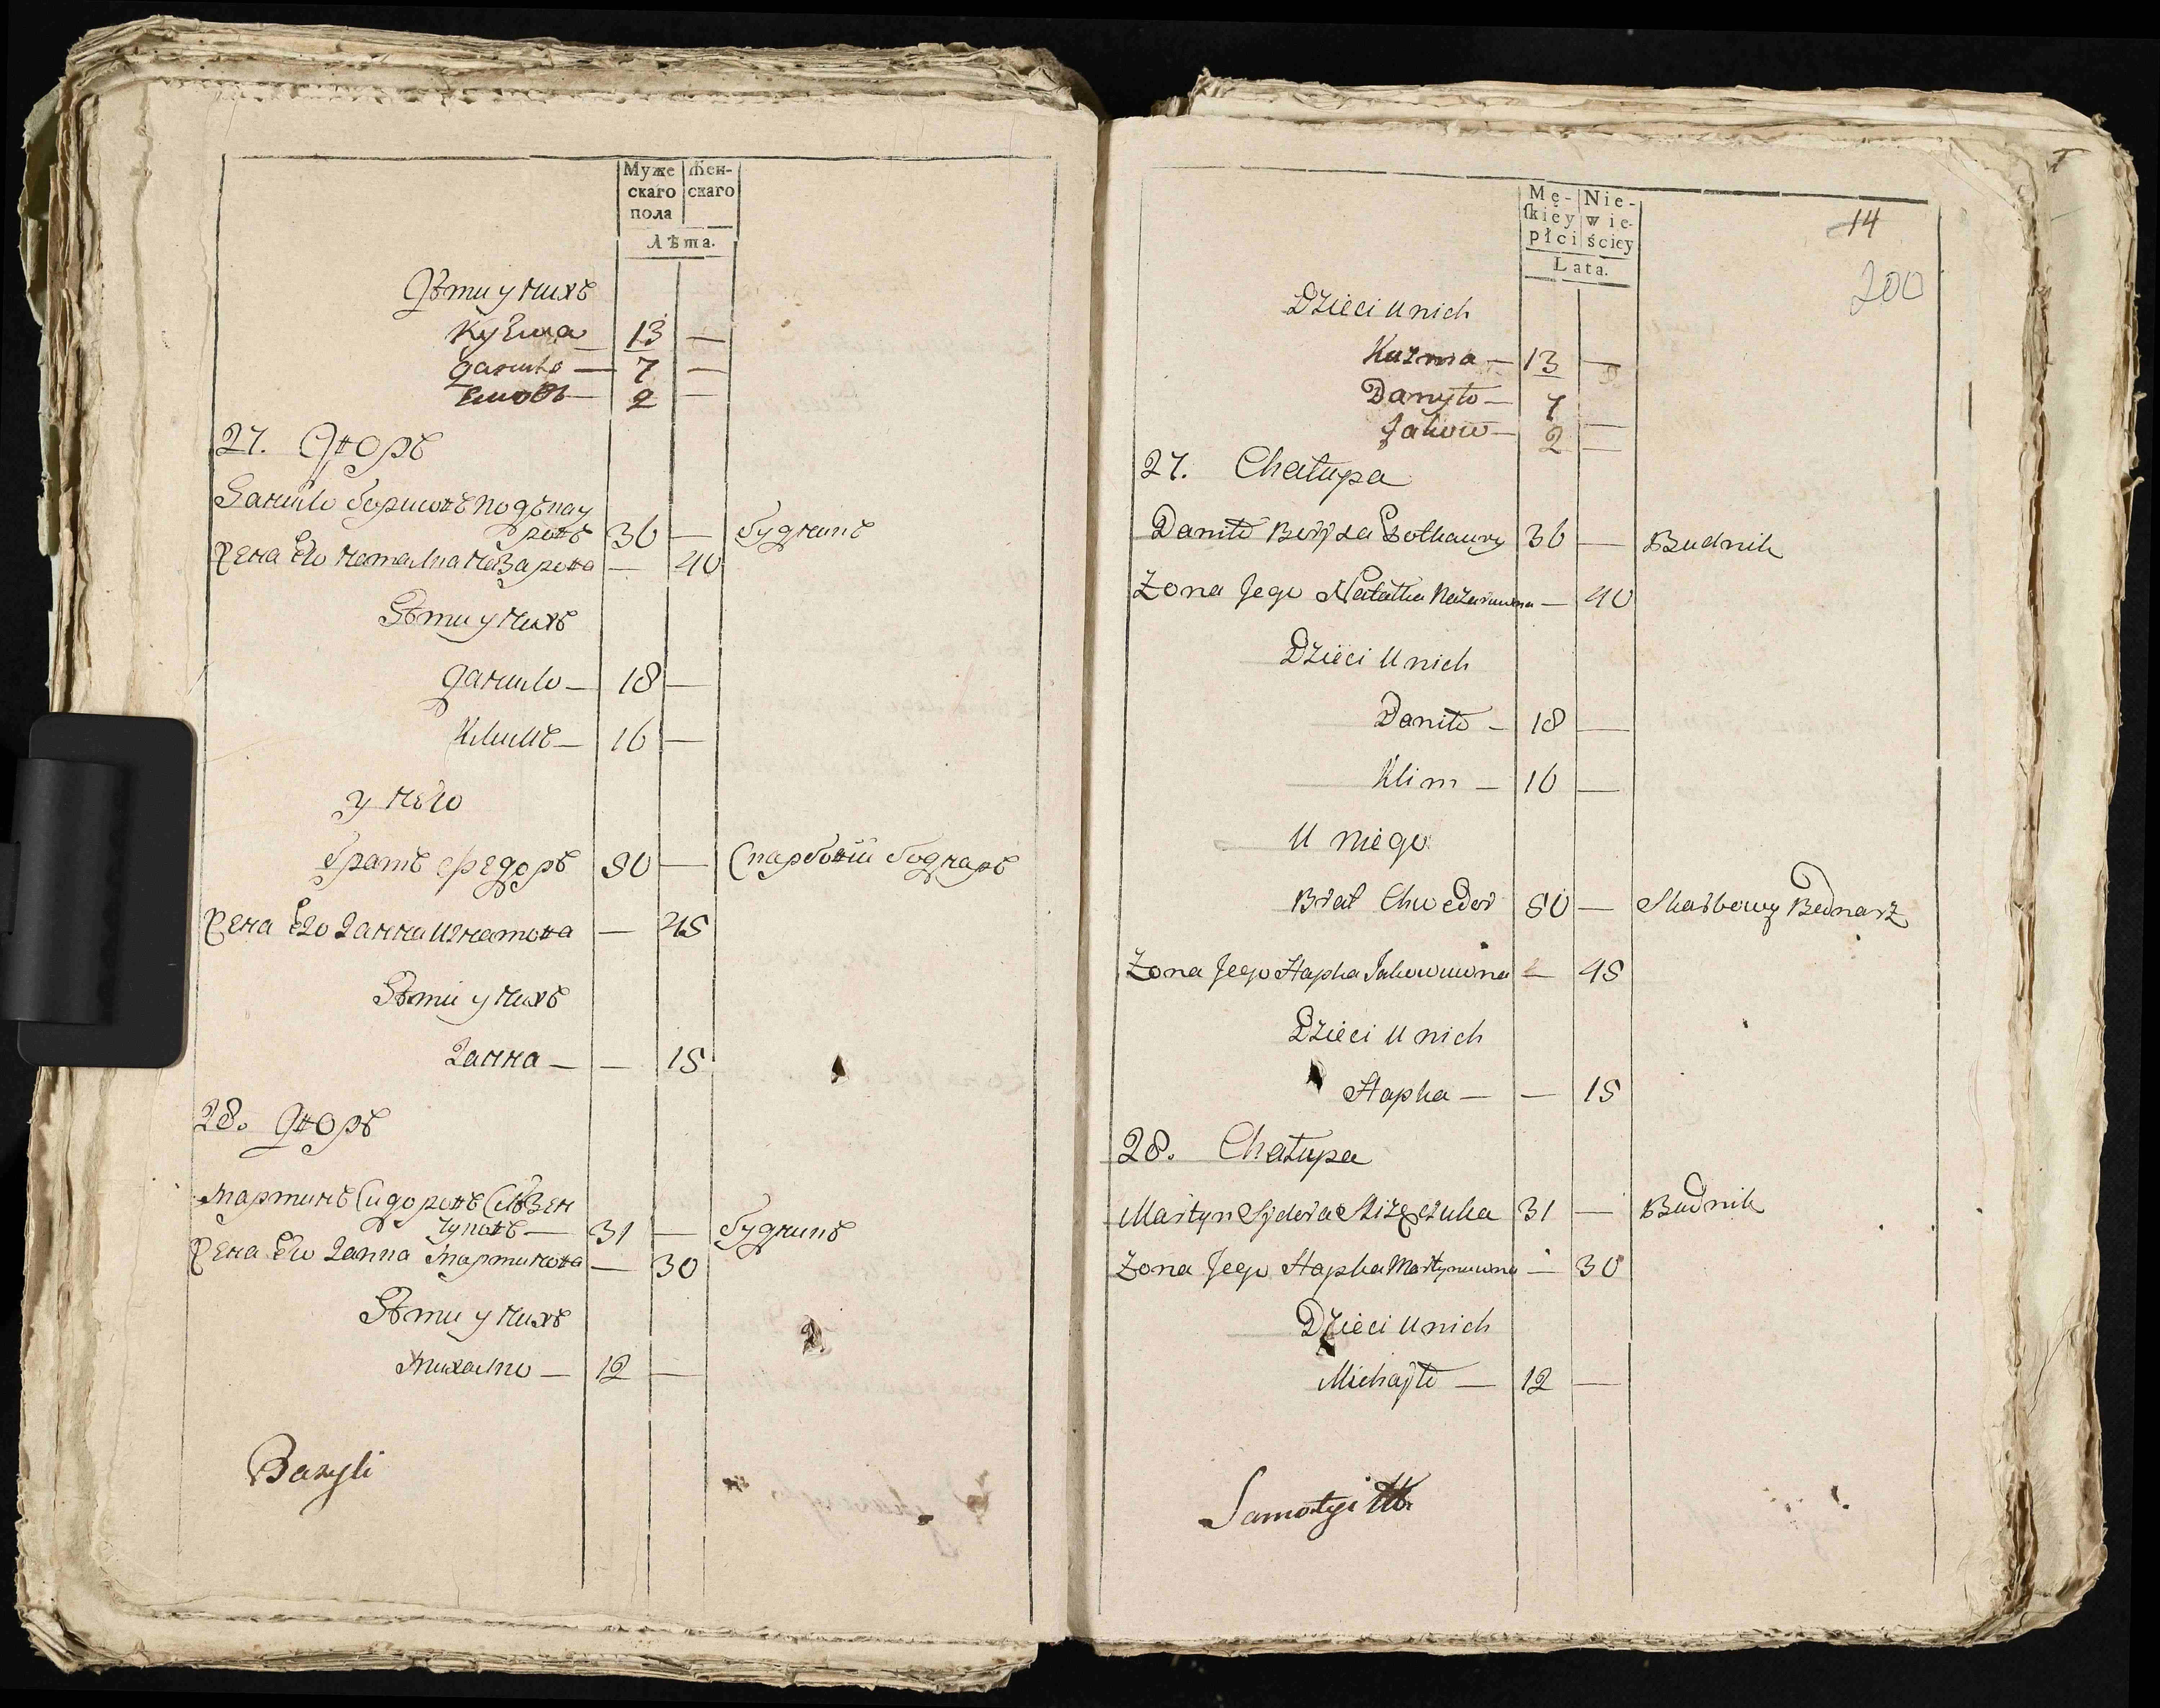 Муже
скаго
пола
Жен-
скаго
Лѣта.
Дѣти у нихъ
Кузма 13 —
Данило — 7 —
2 —
27. Дворъ
Данило Борисовъ
36 — Будникъ
Жена Его Наталиа Назарова — 40
Дѣти у нихъ
Данило — 18 —
Климъ — 16 —
у него
братъ Федоръ 50 — Скарбовій боднаръ
Жена Его Ганна — 45
Дѣти у нихъ
Ганна — — 15
28. Дворъ
Мартинъ Сидоровъ
31 — Будникъ
Жена Его Ганна Мартинова — 30
Дѣти у нихъ
Михайло — 12 —
Bazyli
Mę-
skiéy
płci
Nie-
wie-
ściey
Lata.
14
200
Dzieci u nich
Kuzma — 13 —
Danyło — 7
Jakow — 2 —
27. Chałupa
Daniło 36 — Budnik
Żona Jego Natalka Nazarowna — 40
Dzieci u nich
Daniło — 18 —
Klim — 16 —
U niego
Brat Chwedor 50 — Skarbowy Bednarz
Żona Jego Hapka Jakowowna — 45
Dzieci u nich
Hapka — — 15
28. Chałupa
Martyn Sydora 31 — Budnik
Żona Jego Hapka Martynowna — 30
Dzieci u nich
Michajło — 12 —